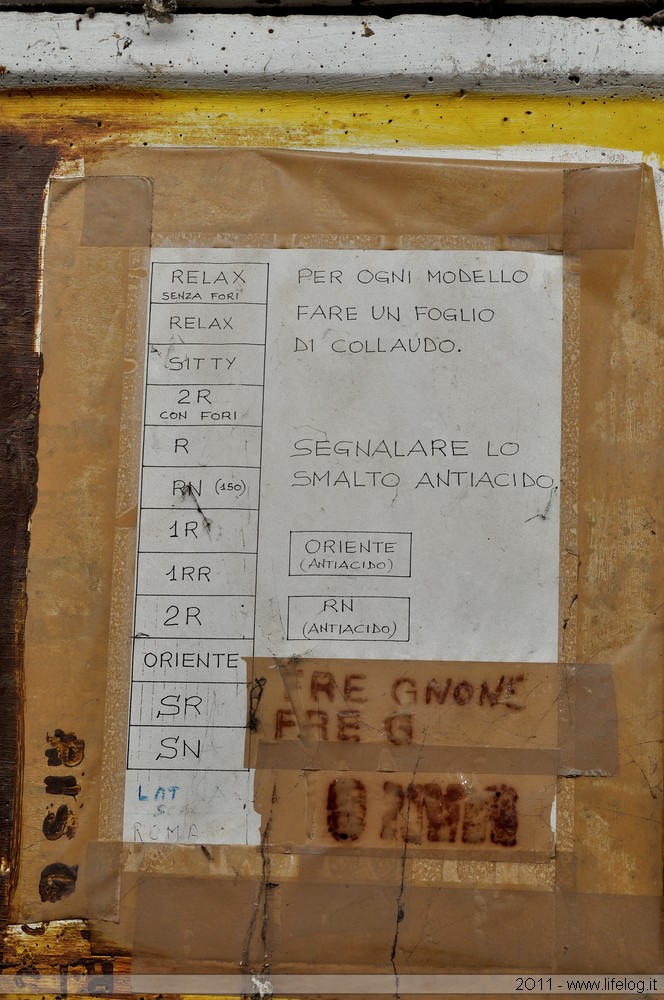 RELAX
SENZA FORI
RELAX
SITTY
2R
CON FORI
R
RN (150)
1R
1RR
2R
ORIENTE
SR
SN
LAT
ROMA
PER OGNI MODELLO
FARE UN FOGLIO
DI COLLAUDO.
SEGNALARE LO
SMALTO ANTIACIDO.
ORIENTE
(ANTIACIDO)
RN
(ANTIACIDO)
FRE GNONE
FRE G
2011 - www.lifelog.it